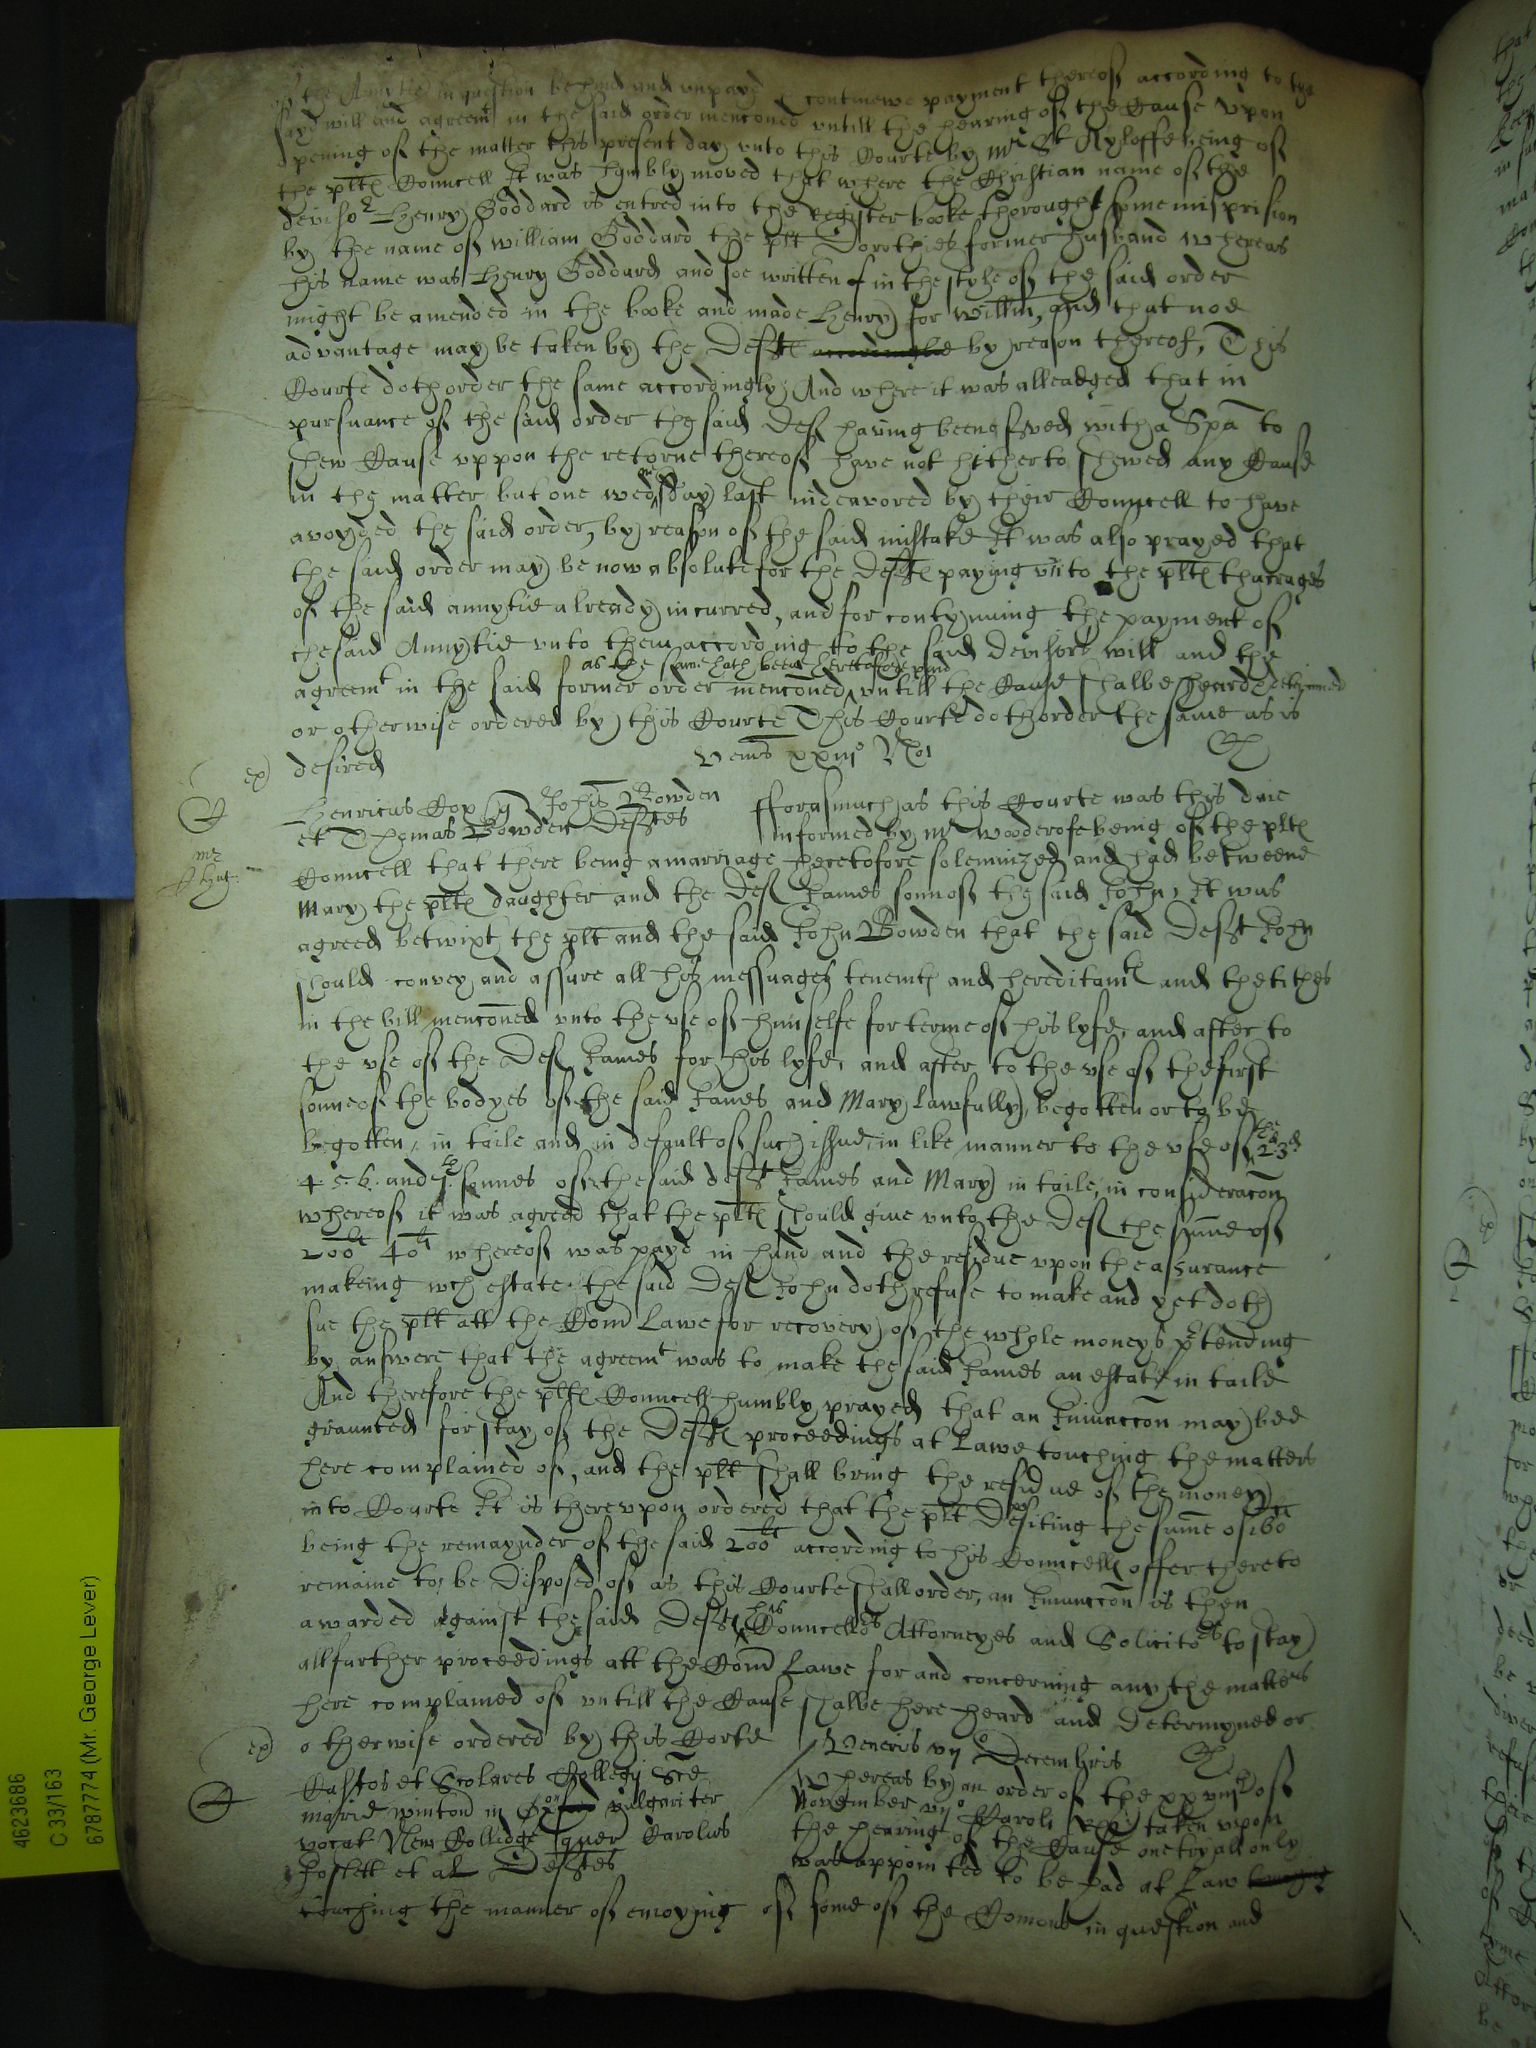 of the Anuitie in question behind and unpayd & continewe payment thereof according to the
sayd will and agreemt in the said order menconed untill the hearing of the Cause Upon
opening of the matter this present day unto this Courte by Mr St Ayloffe being of
the pltes Councell It was humbly moved that where the Christian name of the
devisor Henry Goddard is entred into the Register booke thorought some misprision
by the name of William Goddard the plt Dorothies former husband whereas
his name was Henry Goddard and soe written in the style of the said order
might be amended in the booke and made Henry for Willm, and that noe
advantage may be taken by the Deftes accordinglie by reason thereof, This
Courte doth order the same accordingly, And where it was alleadged that in
pursuance of the said order the said Def having beene served with a Spa to
shew Cause uppon the retorne thereof have not hitherto shewed any Cause
in the matter but one wednesday last indeavored by their Councell to have
avoyded the said order, by reason of the said mistake It was also prayed that
the said order may be now absolute for the Deftes paying unto the pltes tharrages
of the said annytie already incurred, and for contynuing the payment of
the said Annytie unto them according to the said devisors will and the
as the same hath beene heretofore paid
agreemt in the said former order menconed untill the Cause shalbe heard determined
or otherwise ordered by this Courte This Courte doth order the same as is
desired
ex
Veneris xxiijo No
Henricus Cox q Johes Bowden
et Thomas Bowden Deftes
fforasmuch as this Courte was this daie
informed by Mr Wooderofe being of the pltes
Mr
Councell that there being a marriage heretofore solemnized and had betweene
Mary the pltes daughter and the Def James sonn of the said John, It was
agreed betwixt the plt and the said John Bowden that the said Deft John
should convey and assure all his messuages tenemtes and hereditamtes and the tithes
in the bill menconed unto the use of himselfe for terme of his lyfe, and after to
the use of the Def James for his lyfe, and after to the use of the first
sonne of the bodyes of the said James and Mary lawfully begotten or to be
begotten, in taile and in default of such issue, in like manner to the use of the 2d 3d
4 5 6. and 7th sonnes of the said deft James and Mary in taile, in consideracon
whereof it was agreed that the pltes should give unto the Def the summe of
200li 40li whereof was payd in hand and the residue upon the assurance
makeing wch estate the said Def John doth refuse to make and yet doth
sue the plt att the Comon Lawe for recovery of the whole moneys pretending
by answere that the agreemt was to make the said James an estate in taile
And therefore the pltes Councell humbly prayed that an Iniunccon may bee
graunted for stay of the Deftes proceedings at Lawe touching the matters
here complained of, and the plt shall bring the residue of the money
into Courte It is thereupon ordered that the plt Depositing the summe of 160li
being the remaynder of the said 200li according to his Councells offer there to
remaine to be disposed of as this Courte shall order, an Iniunccon is then
awarded against the said Deft his Councellors Attorneyes and Solicitors to stay
all further proceedings att the Comon Lawe for and concerning any the matters
here complained of untill the Cause shalbe here heard and determyned or
otherwise ordered by this Corte
ex
Veneris vijo Decembris
Custos et Scolares Collegij Sce
marie winton in Oxon vulgariter
vocat New Colledge quer Carolus
et al Deftes
Whereas by an order of the xxviijth of
November vijo Caroli Rs taken upon
the hearing of the Cause one tryall only
was appointed to be had at Law
touching the manner of enioying of some of the Comons in question and
4623686
C 33/163
6787774 (Mr. George Lever)